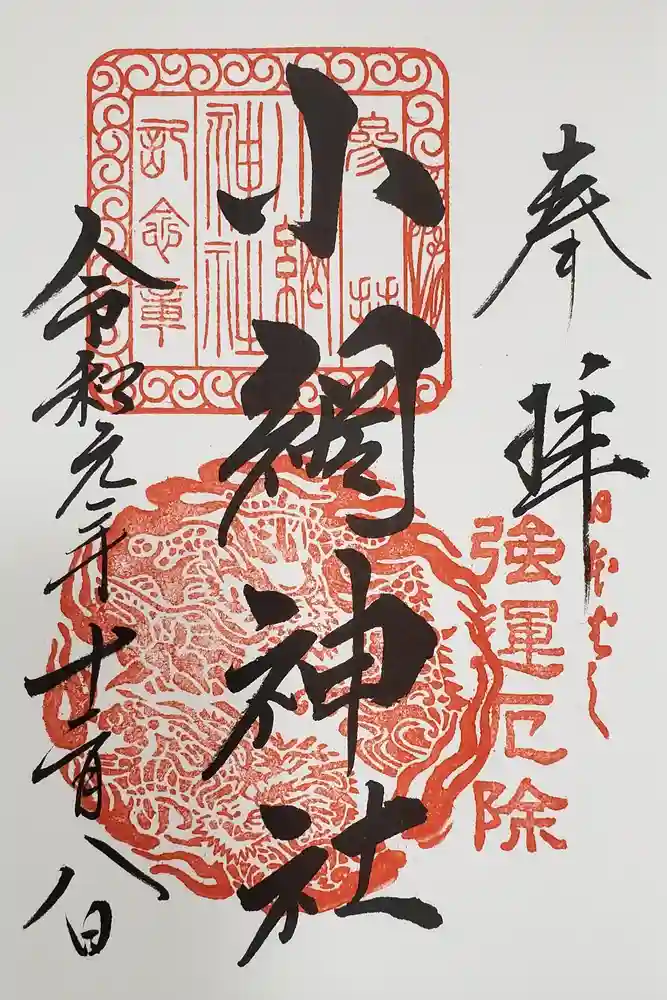 奉拝
日本ばし
強運厄除
参拝
小網神社
記念章
小網神社
令和元年十一月八日